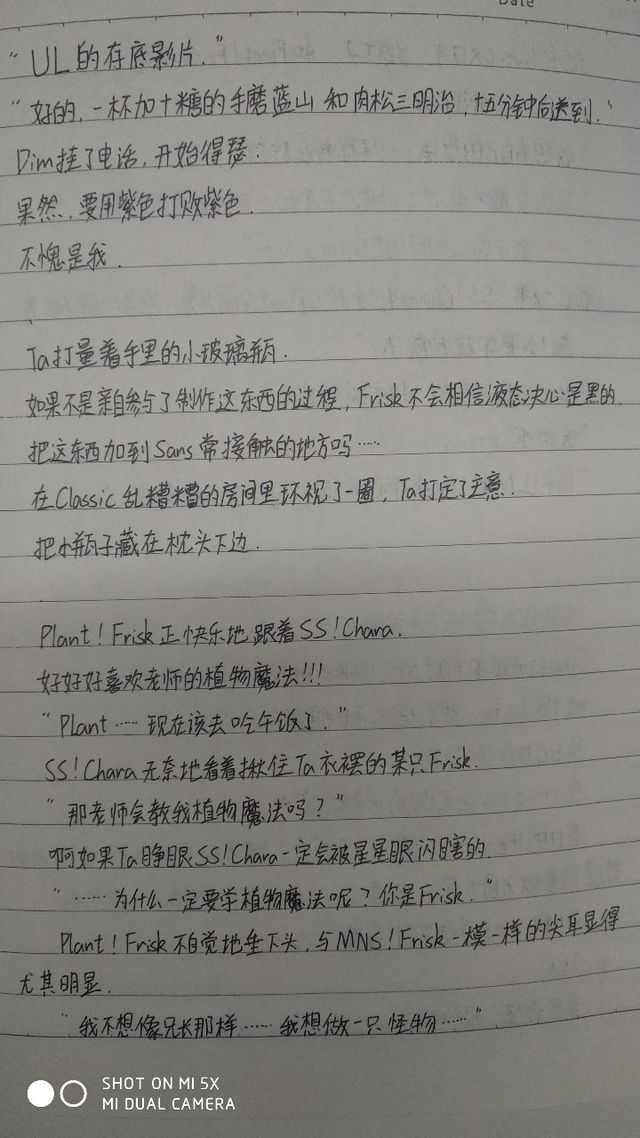 Date
"UL的存底影片."
"好的,一杯加十糖的手磨蓝山 和肉松三明治,十五分钟后送到."
Dim挂了电话,开始得瑟.
果然,要用紫色打败紫色.
不愧是我.
Ta打量着手里的小玻璃瓶.
如果不是亲自参与了制作这东西的过程,Frisk不会相信液态决心是黑的.
把这东西加到Sans常接触的地方吗……
在Classic乱糟糟的房间里环视了一圈,Ta打定了主意.
把小瓶子藏在枕头下边.
Plant!Frisk正快乐地跟着SS!Chara.
好好好喜欢老师的植物魔法!!!
"Plant……现在该去吃午饭了."
SS!Chara无奈地看着揪住Ta衣摆的某只Frisk.
"那老师会教我植物魔法吗?"
啊如果Ta睁眼SS!Chara一定会被星星眼闪瞎的.
"……为什么一定要学植物魔法呢?你是Frisk."
Plant!Frisk不自觉地垂下头,与MNS!Frisk一模一样的尖耳显得
尤其明显.
"我不想像兄长那样……我想做一只怪物……"
SHOT ON MI 5X
MI DUAL CAMERA